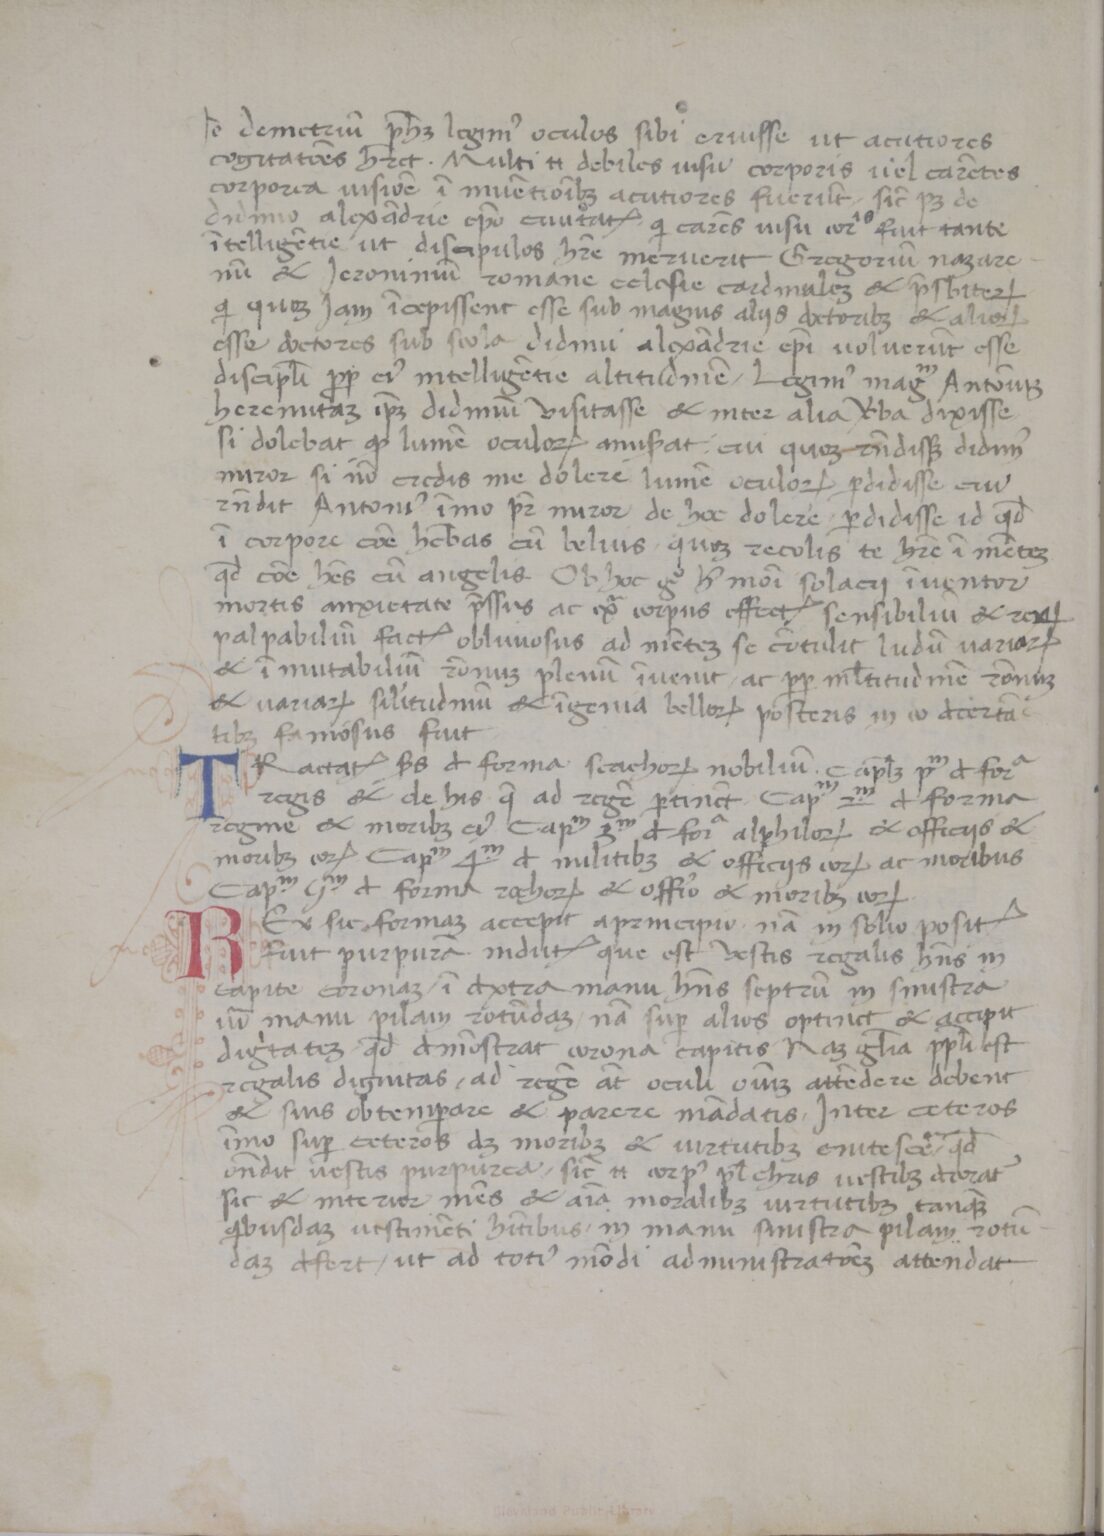 fe demetriū ph̄ꝫ legimꝰ oculos sibi eruisse ut acutiores
cogitatōēs hr̄et · Multi tt debiles uisu corporis uel carētes
corporea uisiōe ī inuētioībꝫ acutiores fuerūt / sic̄ pꝫ de
didimo alexādrie ep̄o ciuitatꝭ q̇ carēs uisu corꝑis fuit tante
ītelligētie / ut discipulos hr̄e meruerit Gregoriū nazare
nū & Jeronimū romane eclesie cardinalēꝫ & p̄sbiterꝝ
q̇ quoꝫ Jam īcepissent esse sub magnis alijs doctoribꝫ & alioꝝ
esse doctores sub scola didimi alexādrie ep̄i uoluerūt esse
discipl̄i pp̄ eiꝰ intelligētie altitudinē / Legimꝰ magᵐ Antoniūꝫ
heremitaꝫ ip̄ꝫ didimū uisitasse & inter alia v̄ba dixisse
si dolebat ꝙ lumē oculoꝝ amiserat · cui quoꝫ rn̄disꝫ didimꝰ
miror si nō credis me dolere lumē oculoꝝ ꝑdidisse cui
rn̄dit Antoniꝰ īmo pr̄ miror de hoc dolere / ꝑdidisse id qd̄
ī corpore cōe hēbas cū beluis / quoꝫ recolis te hr̄e ī mēteꝫ
qd̄ cōe hēs cū angelis Ob hoc gͦ hꝰmoi solacij īuentor
mortis anxietate p̄ssus ac ex̄ corpus effectꝰ sensibiliū & rerꝝ
palpabiliū factꝰ obliuiosus ad mēteꝫ se cōtulit ludū uarioꝝ
& ī mutabiliū rōnuꝫ plenū īuenit / ac pp̄ ml̄titudinē rōnuꝫ
& uariaꝝ silitudinū & īgenia belloꝝ posteris in eo d̄certā
tibꝫ famosus fuit
TRactatꝰ sc̄s d̄ forma scachoꝝ nobiliū · Capl̄ꝫ pᵐ d̄ forᵃ
regis & de his q̄ ad regē ꝑtinēt Capᵐ 2ᵐ d̄ forma
regine & moribꝫ eiꝰ Capᵐ 3ᵐ d̄ forᵃ alphiloꝝ & officijs &
moribꝫ eoꝝ Capᵐ 4ᵐ d̄ militibꝫ & officijs eoꝝ ac moribus
Capᵐ 5ᵐ d̄ forma rochoꝝ & offīo & moribꝫ eoꝝ
REx sic formaꝫ accepit a principio · nā in solio positꝰ
fuit purpura indutꝰ que est uestis regalis hn̄s in
capite coronaꝫ / ī dextra manu hn̄s septrū in sinistra
uō manu pilam rotūdaꝫ / nā sup alios optinet & accipit
dignitateꝫ qd̄ demōstrat corona capitis Naꝫ gl̄ia pp̄li est
regalis dignitas / ad regē at oculi oīuꝫ attēdere debent
& suis obtemꝑare & parere mādatis / Inter ceteros
īmo suꝑ ceteros dꝫ moribꝫ & uirtutibꝫ enitescere / qd̄
on̄dit uestis purpurea / sic̄ tt corpꝰ pl̄chris uestibꝫ d̄coratꝰ
sic & interior mēs & aīa moralibꝫ uirtutibꝫ tanqꝫ
q̇busdaꝫ uestimēti hītibus / in manu sinistra pilam rotū
daꝫ d̄fert / ut ad totiꝰ mōdi administratōēꝫ attendat
Cleveland Public Library